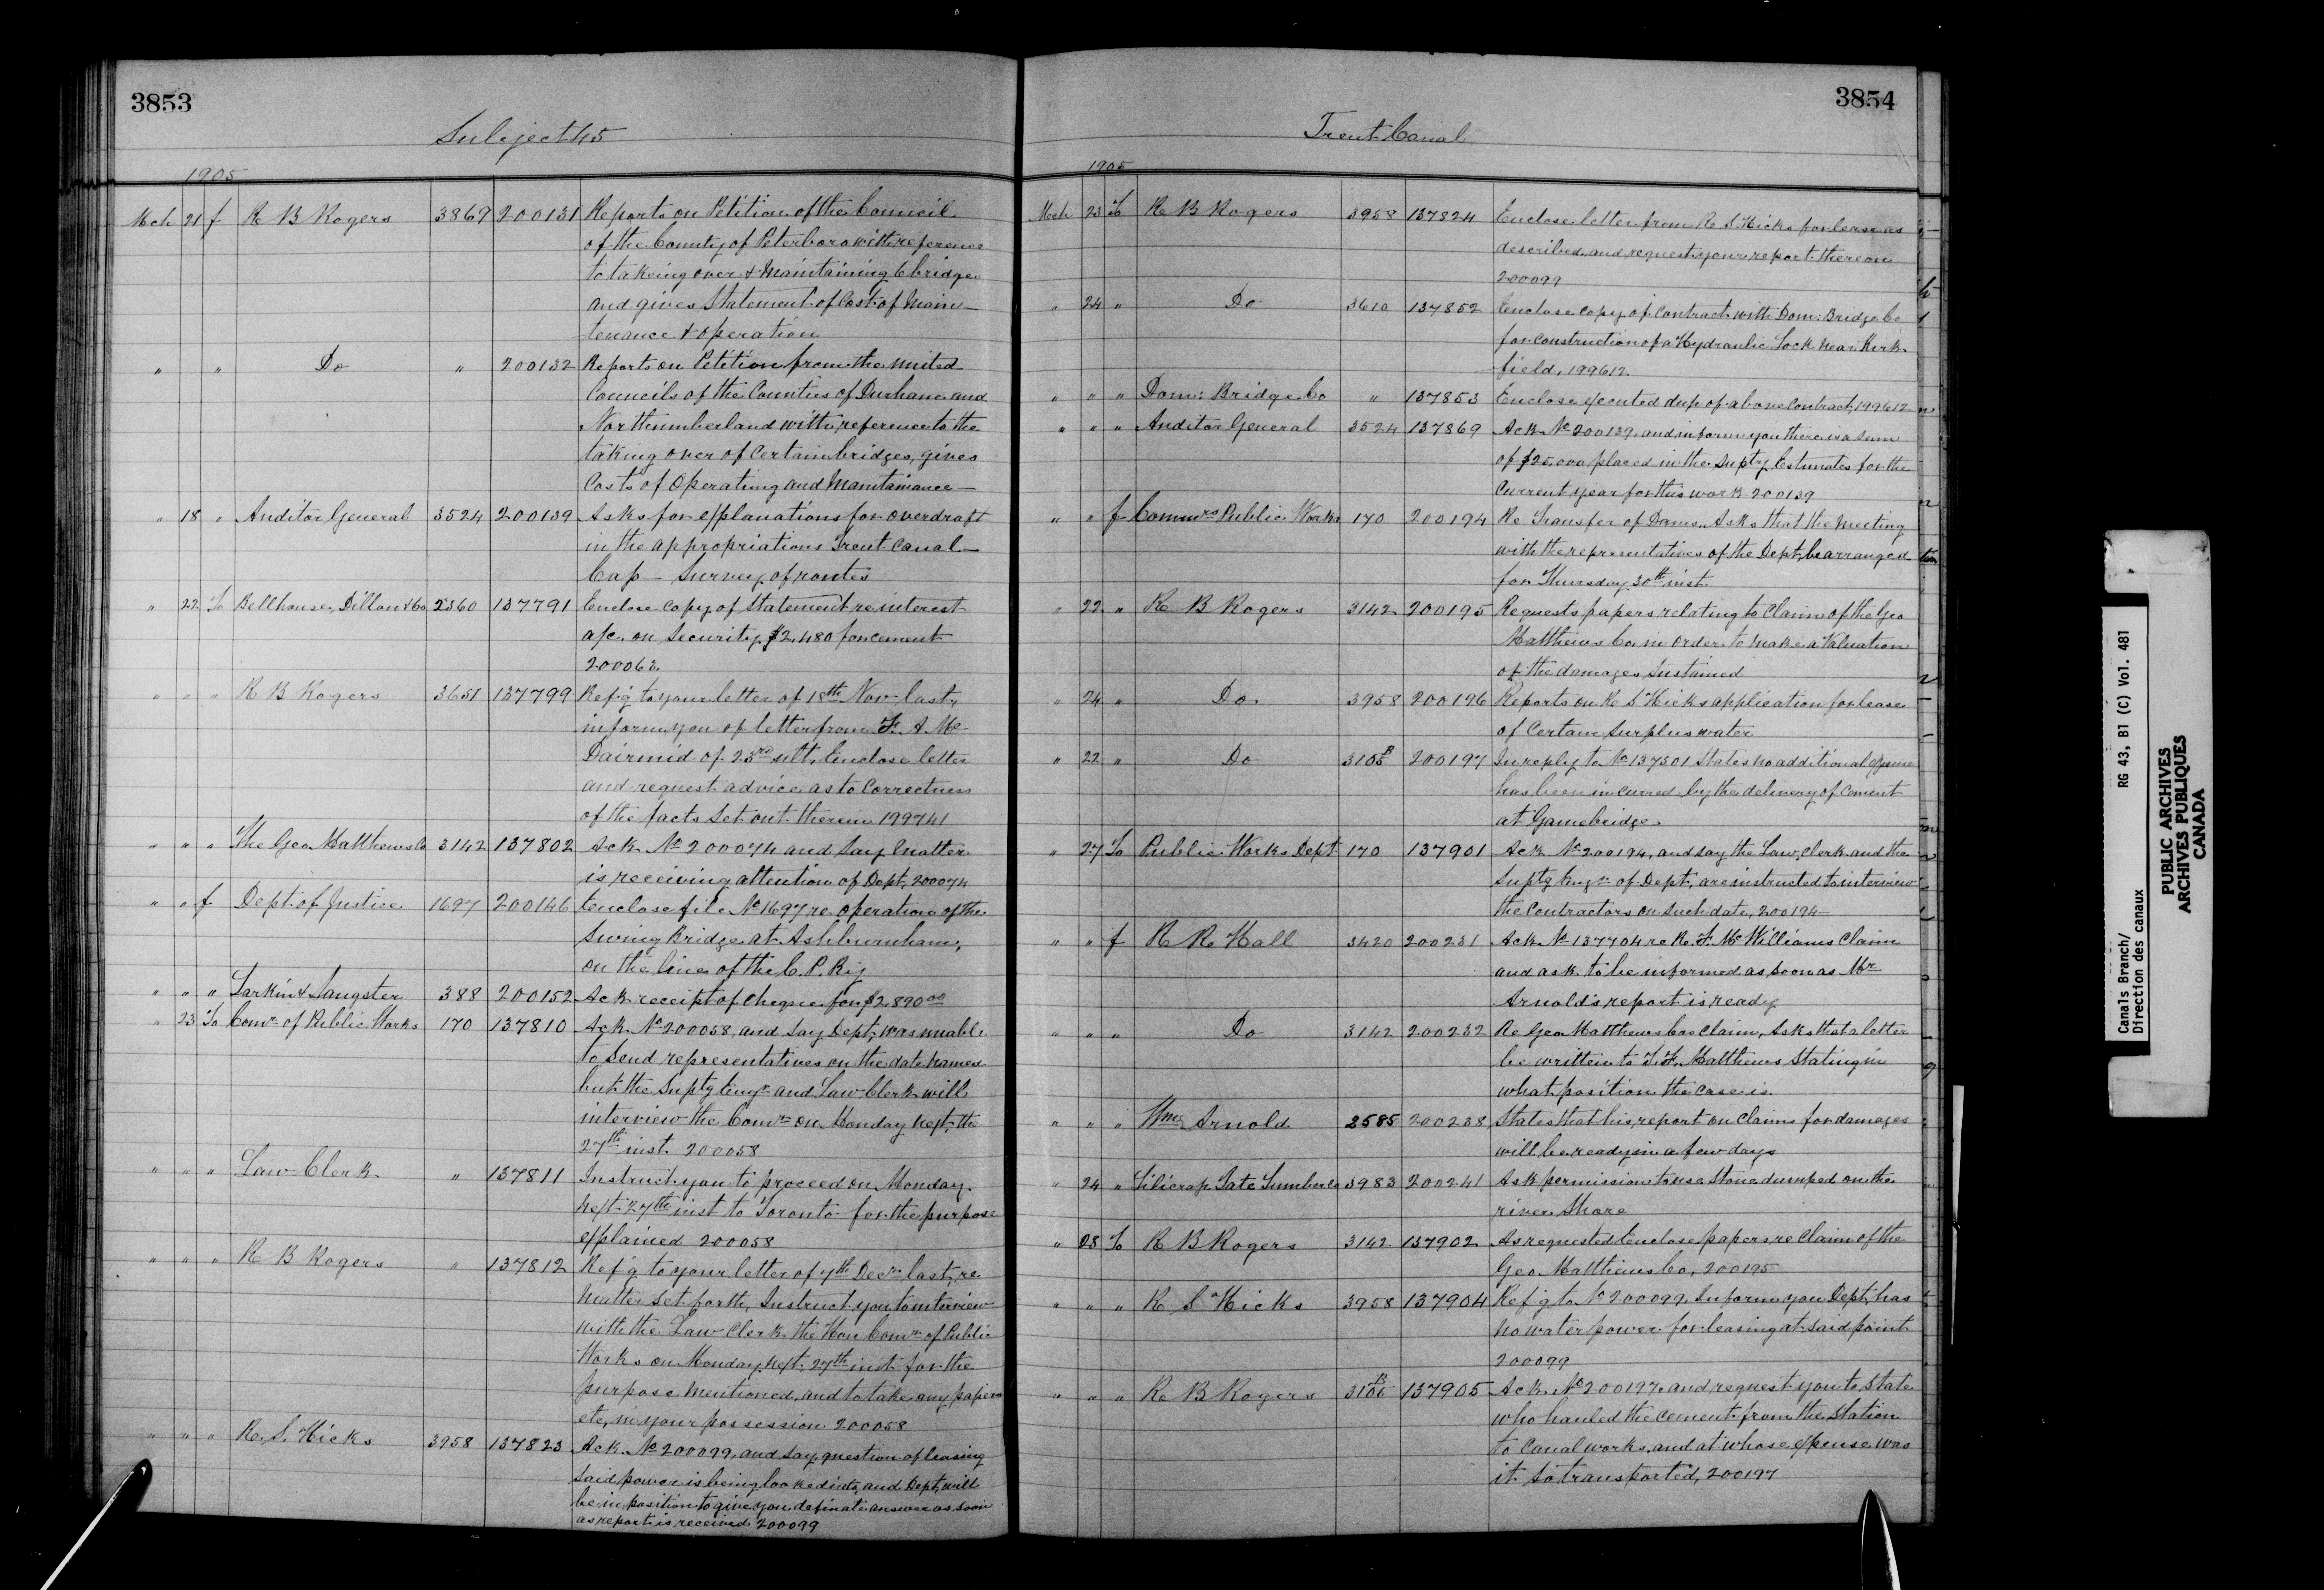 3853
Subject 45
1905
Mch 21 f R B Rogers 3869 200131 Reports on Petition of the Council
of the County of Peterboro with reference
to takeing over & Maintaining 6 bridges
and gives Statement of Cost of Main-
tenance & operation
" " Do " 200132 Reports on Petition from the United
Councils of the Counties of Durham and
Northumberland with reference to the
taking over of Certain bridges, gives
Costs of Operating and Maintainance -
" 18 " Auditor General 3524 200139 Asks for explanations for overdraft
in the appropriations Trent Canal -
Cap - Survey of routes
" 22 To Bellhouse, Dillon & Co 2360 137791 Enclose Copy of Statement re interest
a/c. on Security $2,480 for cement
200063
" " " R B Rogers 3651 137799 Ref'g to your letter of 18th Nov last,
inform you of letter from F. A. Mc-
Dairmid of 23rd ult, Enclose letter
and request advice as to Correctness
of the facts set out therein 199741
" " " The Geo. Matthews Co 3142 137802 Ack No 200074 and Say matter
is receiving attention of Dept, 200074
" " f Dept. of Justice 1697 200146 Enclose file No 1697 re operation of the
Swing Bridge at Ashburnham,
on the line of the C. P. Ry
" " " Larkin & Sangster 388 200152 Ack receipt of Cheque for $2,890.00
" 23 To Comr. of Public Works 170 137810 Ack. No 200058, and Say Dept, was unable
to Send representatives on the date named
but the Suptg Engr and Law Clerk will
interview the Comr on Monday next, the
27th inst. 200058
" " " Law Clerk " 137811 Instruct you to proceed on Monday
next 27th inst to Toronto for the purpose
explained 200058
" " " R B Rogers " 137812 Ref'g to your letter of 7th Decr last, re
matter set forth, Instruct you to interview
with the Law Clerk the Hon Comr of Public
Works on Monday next, 27th inst for the
purpose mentioned, and to take any papers
etc, in your possession 200058
" " " R. S. Hicks 3958 137823 Ack No 200099, and say question of leasing
said power is being looked into, and Dept, will
be in position to give you definate answer as soon
as report is received 200099
3854
Trent Canal
1905
Mch 23 To R B Rogers 3958 137824 Enclose letter from R S Hicks for lease as
described, and request your report thereon
200099
" 24 " Do 3610 137852 Enclose Copy of Contract with Dom: Bridge Co
for construction of a Hydraulic Lock near Kirk-
field, 199612
" " " Dom: Bridge Co " 137853 Enclose executed dup of above Contract, 199612
" " " Auditor General 3524 137869 Ack No 200139, and inform you there is a sum
of $25,000 placed in the Supty Estimates for the
Current year for this work 200139
" " f Commrs Public Works 170 200194 Re Transfer of Dams, Asks that the Meeting
with the representatives of the Dept, be arranged
for Thursday 30th inst.
" 22 " R B Rogers 3142 200195 Requests papers relating to Claim of the Geo
Matthews Co, in order to make a Valuation
of the damages Sustained
" 24 " Do 3958 200196 Reports on R S Hicks application for lease
of Certain Surplus water
" 22 " Do 3105B 200197 In reply to No 137501 States no additional expense
has been incurred by the delivery of Cement
at Gamebridge.
" 27 To Public Works Dept 170 137901 Ack No 200194, and say the Law Clerk and the
Suptg Engr of Dept, are instructed to interview
the Contractors on such date, 200194
" " f R R Hall 3420 200231 Ack No 137704 re R. F. McWilliams Claim
and ask to be informed as soon as Mr
Arnold's report is ready
" " " Do 3142 200232 Re Geo Matthews Cos Claim, Asks that a letter
be written to T. F. Matthews Stating in
what position the case is.
" " " Wm Arnold 2585 200238 States that his report on Claims for damages
will be ready in a few days
" 24 " Tate Lumber Co 3983 200241 Ask permission to use Stone dumped on the
river Shore
" 28 To R B Rogers 3142 137902 As requested Enclose papers re Claim of the
Geo. Matthews Co, 200195
" " " R S Hicks 3958 137904 Ref'g to No 200099, Inform you Dept, has
no water power for leasing at said point
200099
" " " R. B Rogers 3106B 137905 Ack No 200197, and request you to State
who hauled the Cement from the Station
to Canal works, and at whose expense was
it so transported, 200197
Canals Branch/ RG 43, B1 (C) Vol. 481
Direction des canaux
PUBLIC ARCHIVES
ARCHIVES PUBLIQUES
CANADA